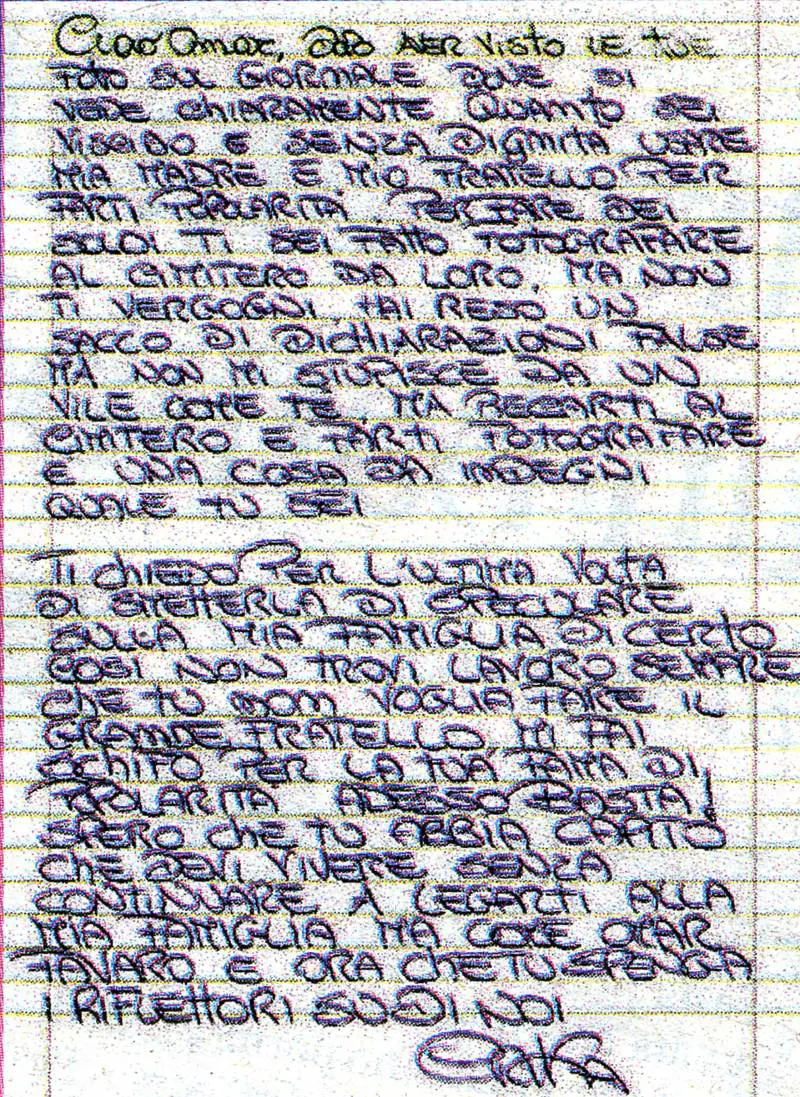 Ciao Omar, DOPO AVER VISTO LE TUE
FOTO SUL GIORNALE DOVE SI
VEDE CHIARAMENTE QUANTO SEI
VISCIDO E SENZA DIGNITA USARE
MIA MADRE E MIO FRATELLO PER
FARTI POPOLARITA. PER FARE DEI
SOLDI TI SEI FATTO FOTOGRAFARE
AL CIMITERO DA LORO, MA NON
TI VERGOGNI HAI RESO UN
SACCO DI DICHIARAZIONI FALSE
MA NON MI STUPISCE DA UN
VILE COME TE, MA RECARTI AL
CIMITERO E FARTI FOTOGRAFARE
E UNA COSA DA INDEGNI
QUALE TU SEI
TI CHIEDO PER L'ULTIMA VOLTA
DI SMETTERLA DI SPECULARE
SULLA MIA FAMIGLIA DI CERTO
COSI NON TROVI LAVORO SEMPRE
CHE TU NON VOGLIA FARE IL
GRANDE FRATELLO MI FAI
SCHIFO PER LA TUA FAMA DI
POPOLARITA ADESSO BASTA!
SPERO CHE TU ABBIA CAPITO
CHE DEVI VIVERE SENZA
CONTINUARE A LEGARTI ALLA
MIA FAMIGLIA MA COME OMAR
FAVARO E ORA CHE TU SPENGA
I RIFLETTORI SU DI NOI
Erika